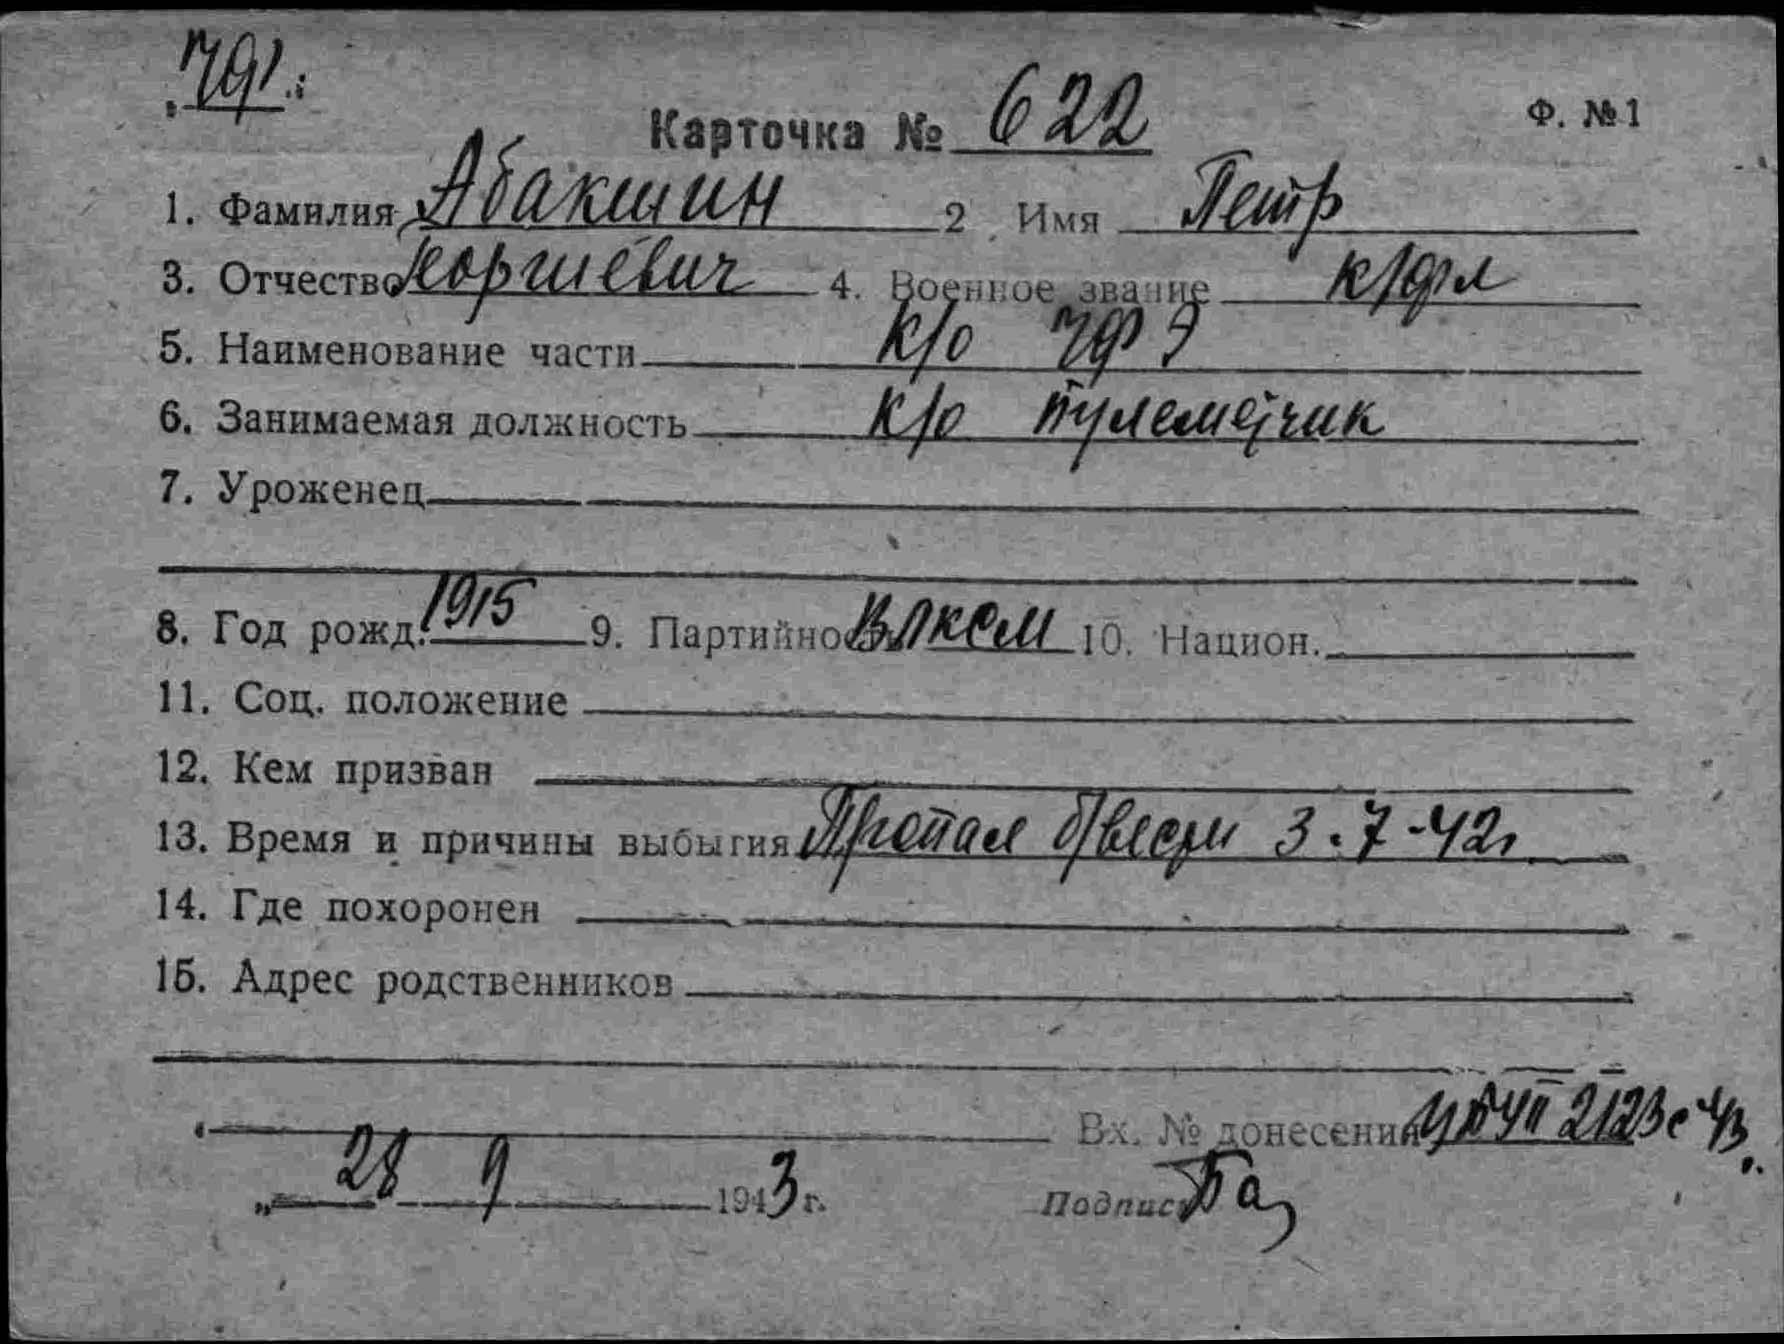 ЧФ
Карточка № 622
Ф. № 1
1. Фамилия Абакшин 2. Имя Петр
3. Отчество Георгиевич 4. Военное звание к/фл
5. Наименование части к/о ЧФ
6. Занимаемая должность к/о пулеметчик
7. Уроженец
8. Год рожд. 1915 9. Партийность ВЛКСМ 10. Национ.
11. Соц. положение
12. Кем призван
13. Время и причины выбытия Пропал б/вести 3.7-42г
14. Где похоронен
15. Адрес родственников
Вх. № донесения 2123с 43
„ 28 9 1943 г. Подпись